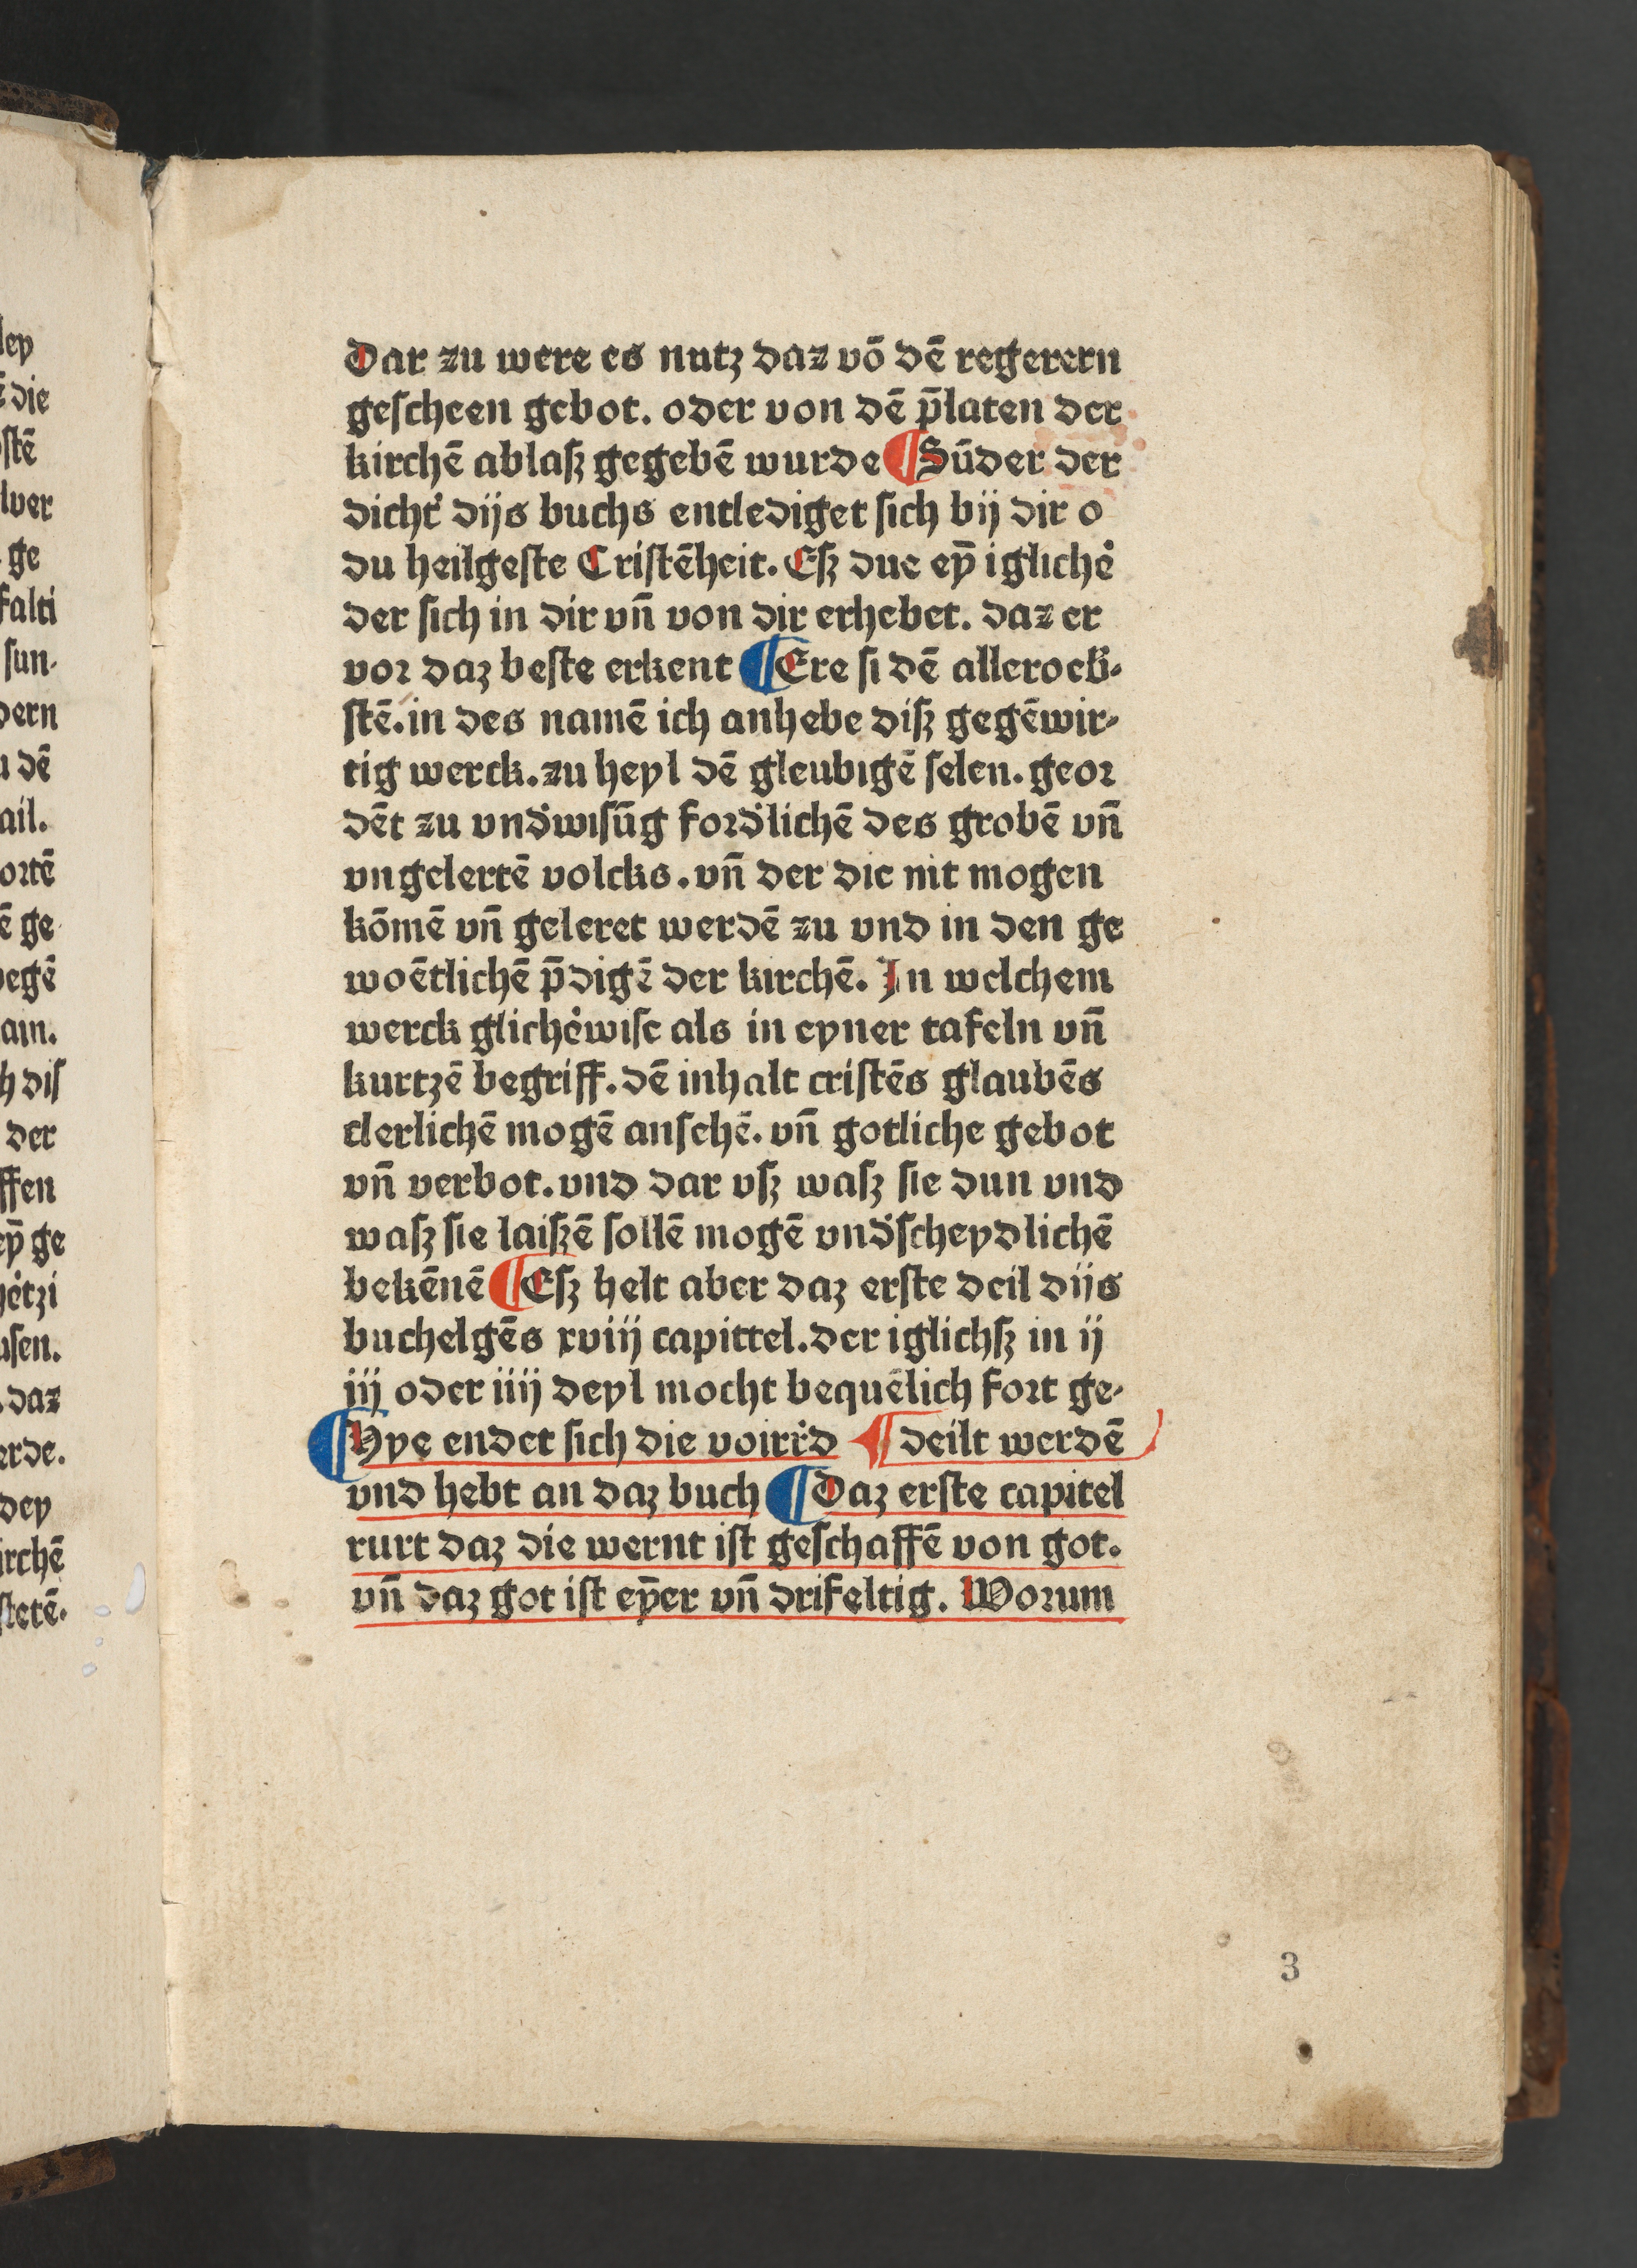 ley
die
stē
lver
ge
falti
sun⸗
dern
u dē
ail.
ortē
ē ge
egē
am.
h diſ
der
ffen
eȳ ge
uſen.
daz
erde.
dey
irchē
ſtetē.
Dar zu were es nutz daz vō dē regerern
geſcheen gebot. oder von dē p̄laten der
kirchē ablaſz gegebē wurde ¶ Sūder der
dicht' dijs buchs entlediget ſich bij dir o
du heilgeſte Criſtēheit. Eſz due eȳ iglich'e
der ſich in dir vn̄ von dir erhebet. daz er
vor daz beſte erkent ¶ Ere ſi dē allerocb'⸗
ſtē. in des namē ich anhebe diſz gegēwir⸗
tig werck. zu heyl dē gleubigē ſelen. geor
dēt zu vnd'wiſūg ford'lichē des grobē vn̄
vngelertē volcks. vn̄ der die nit mogen
kōmē vn̄ geleret werdē zu vnd in den ge
woētlichē p̄digē der kirchē. In welchem
werck glich'ewiſe als in eyner tafeln vn̄
kurtzē begriff. dē inhalt criſtēs glaubēs
clerlichē mogē anſehē. vn̄ gotliche gebot
vn̄ verbot. vnd dar vſz waſz ſie dun vnd
waſz ſie laiſzē ſollē mogē vnd'ſcheydlichē
bekēnē ¶ Eſz helt aber daz erſte deil dijs
buchelgēs xviij capittel. der iglichſz in ij
iij oder iiij deyl mocht bequēlich fort ge⸗
¶ Hye endet ſich die voirr'd ¶ deilt werdē
vnd hebt an daz buch ¶ Daz erſte capitel
rurt daz die wernt iſt geſchaffē von got.
vn̄ daz got iſt eȳer vn̄ drifeltig. Worum
3